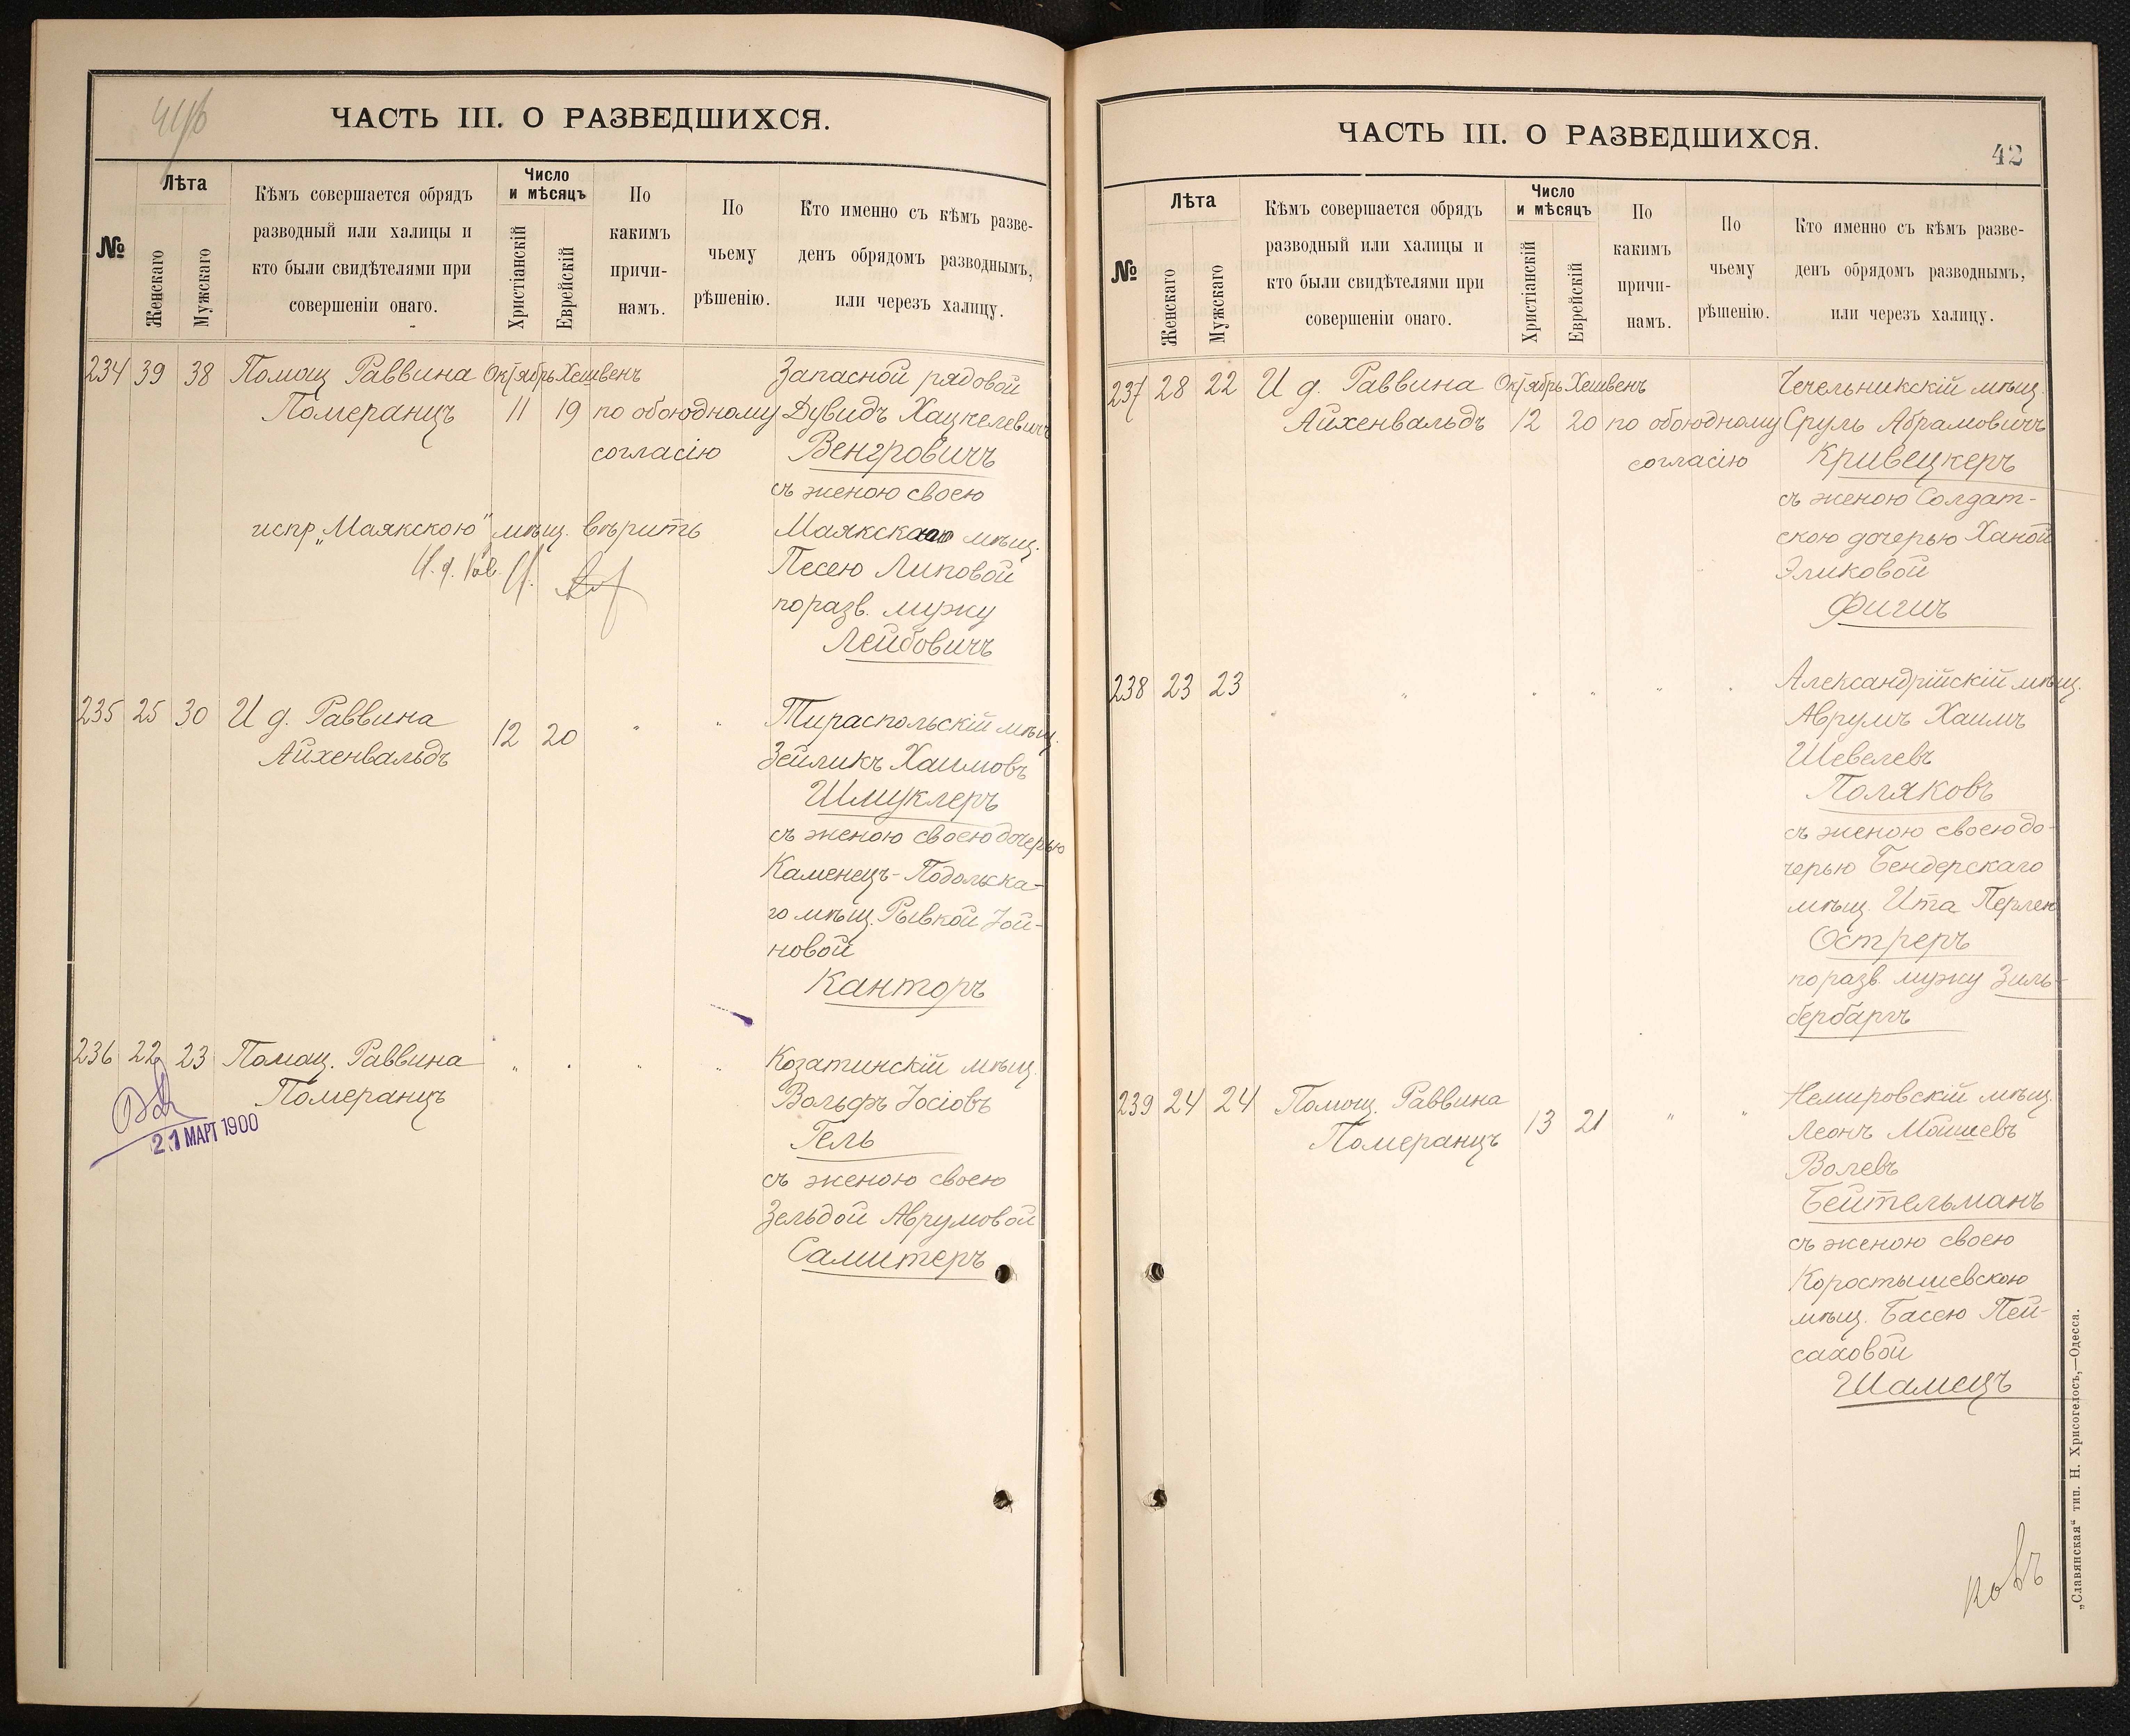 ЧАСТЬ III. О РАЗВЕДШИХСЯ.
№
Лѣта
Женскаго
Мужскаго
Кѣмъ совершается обрядъ
разводный или халицы и
кто были свидѣтелями при
совершеніи онаго.
Число
и мѣсяцъ
Христіанскій
Еврейскій
По
какимъ
причи-
намъ.
По
чьему
рѣшенію.
Кто именно съ кѣмъ разве-
денъ обрядомъ разводнымъ,
или черезъ халицу.
234 39 38 Помощ Раввина Октябрь Хешвенъ Запасной рядовой
Померанцъ 11 19 по обоюдному Дувидъ Хацкелевичъ
согласію Венгровичъ
съ женою своею
испр. „Маякскою" мѣщ. вѣрить Маякскаою мѣщ.
И. д. Рав. Песею Липовой
по разв. мужу
Лейбовичъ
235 25 30 И д. Раввина 12 20 " " Тираспольскій мѣщ.
Айхенвальдъ Зейликъ Хаимовъ
Шмуклеръ
съ женою своею дочерью
Каменецъ-Подольска-
го мѣщ. Рывкой Іой-
новой
Канторъ
236 22 23 Помощ. Раввина " " " " Козатинскій мѣщ.
Померанцъ Вольфъ Іосіовъ
21 МАРТ 1900
Гель
съ женою своею
Зельдой Аврумовой
Самитеръ
ЧАСТЬ III. О РАЗВЕДШИХСЯ.
42
№
Лѣта
Женскаго
Мужскаго
Кѣмъ совершается обрядъ
разводный или халицы и
кто были свидѣтелями при
совершеніи онаго.
Число
и мѣсяцъ
Христіанскій
Еврейскій
По
какимъ
причи-
намъ.
По
чьему
рѣшенію.
Кто именно съ кѣмъ разве-
денъ обрядомъ разводнымъ,
или черезъ халицу.
237 28 22 И д. Раввина Октябрь Хешвенъ Чечельникскій мѣщ.
Айхенвальдъ 12 20 по обоюдному Сруль Абрамовичъ
согласію Кривецкеръ
съ женою Солдат-
скою дочерью Ханой
Эликовой
Фигинъ
238 23 23 " " " " " Александрійскій мѣщ.
Аврумъ Хаимъ
Шевелевъ
Поляковъ
съ женою своею до-
черью Бендерскаго
мѣщ. Ита Перлей
Остреръ
по разв. мужу Зиль-
бербаргъ
239 24 24 Помощ. Раввина 13 21 " " Немировскій мѣщ.
Померанцъ Леонъ Мойшевъ
Волевъ
Бейтельманъ
съ женою своею
Коростышевскою
мѣщ. Басею Пей-
саховой
Шамецъ
ковъ
„Славянская" тип. Н. Хрисогелосъ,—Одесса.